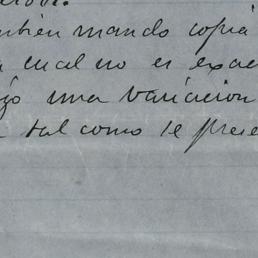 mbién mando copia
cual no es exac
una variación
tal como se prese